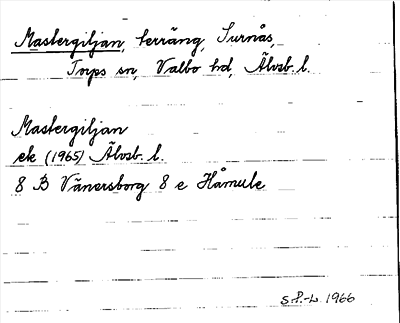 Mastergiljan, terräng, Surnås,
Torps sn, Valbo hd, Älvsb. l.
Mastergiljan
ek (1965) Älvsb. l.
8 B Vänersborg 8 e Håmule
S P.-L. 1966